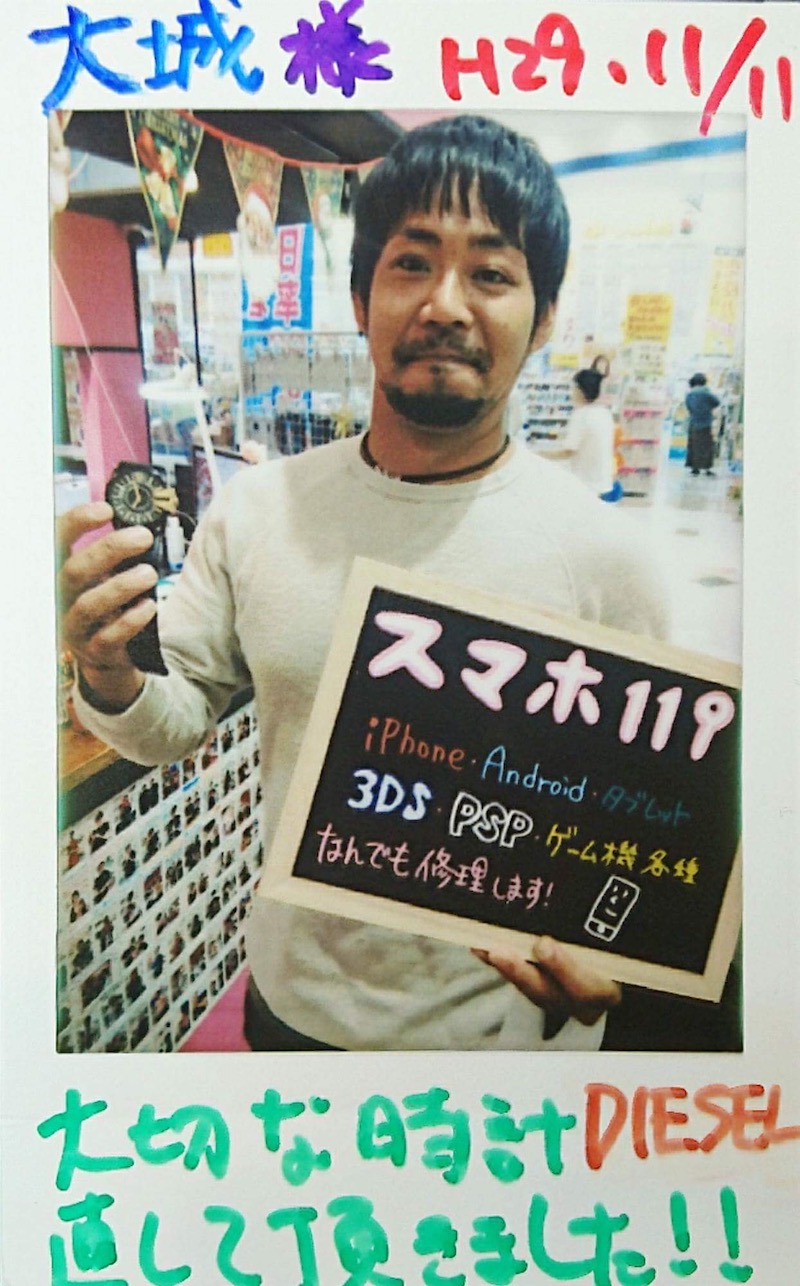 大城 様 H29.11/11
スマホ119
iPhone・Android・タブレット
3DS・PSP・ゲーム機各種
なんでも修理します!
大切な時計DIESEL
直して頂きました!!